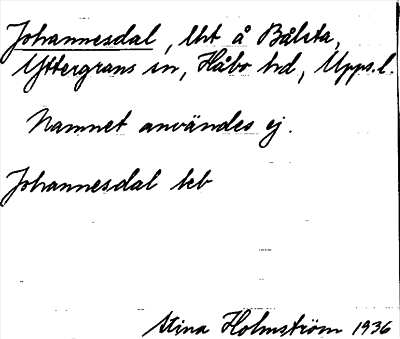 Johannesdal, lht å Bålsta,
Yttergrans sn, Håbo hd, Upps.l.
Namnet användes ej.
Johannesdal teb
Stina Holmström 1936